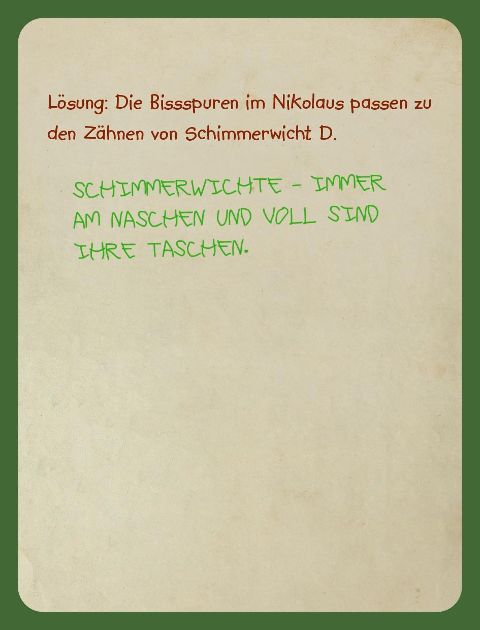 Lösung: Die Bissspuren im Nikolaus passen zu
den Zähnen von Schimmerwicht D.
SCHIMMERWICHTE - IMMER
AM NASCHEN UND VOLL SIND
IHRE TASCHEN.